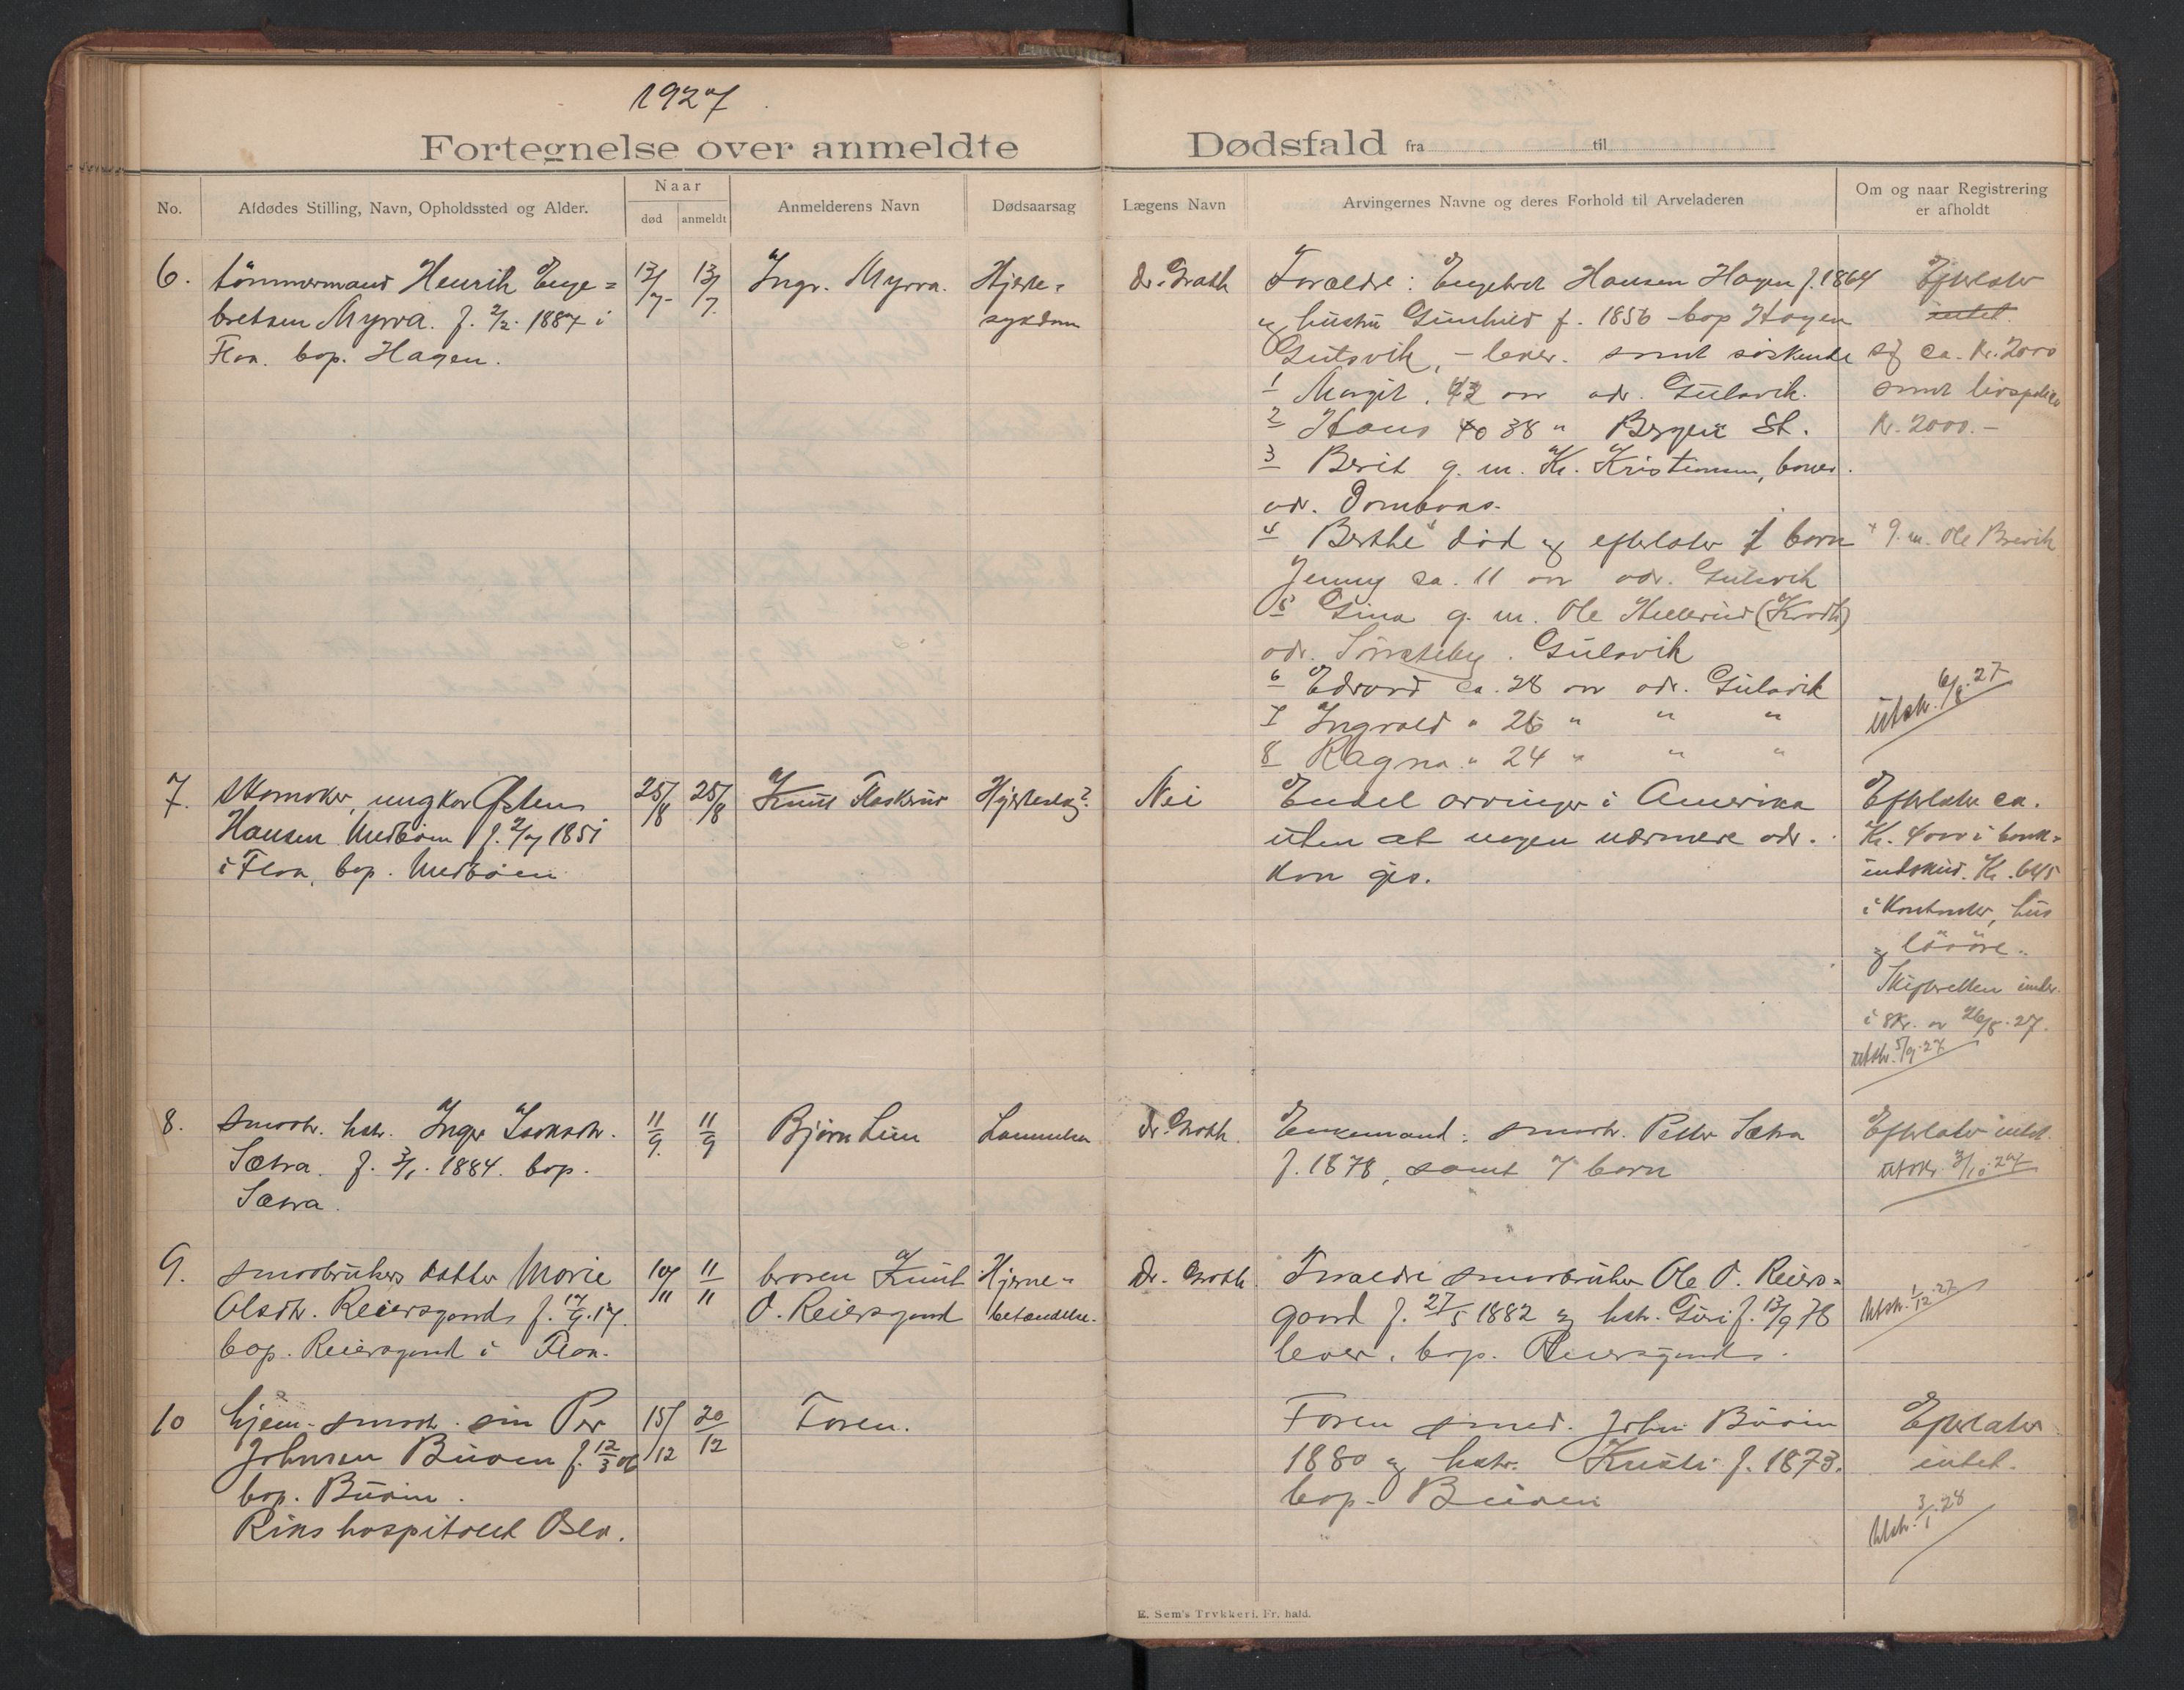 1927
Fortegnelse over anmeldte Dødsfald fra til
No.
Afdødes Stilling, Navn, Opholdssted og Alder.
Naar
død anmeldt
Anmelderens Navn
Dødsaarsag
Lægens Navn
Arvingernes Navne og deres Forhold til Arveladeren
Om og naar Registrering
er afholdt
6. tömmermand Henrik Enge=
bretsen Myrra. f. 2/2. 1887 i
Flaa. bop. Hagen.
13/7 13/7
Ingr. Myrra.
Hjerte-
sygdom
dr. Grath
Forældre: Engebret Hansen Hagen f. 1864
og hustru Gunhild f. 1856 bop Hagen
Gulsvik, - lever. samt söskende
1 Margit, 42 aar adr. Gulsvik.
2 Hans 40 38 " Bergen St.
3 Berit g. m. Kr. Kristensen, baner.
adr. Dombaas.
4 Berthe død og efterlater 1 barn
Jenny ca. 11 aar adr. Gulsvik
5 Gina g. m. Ole Hellerud (Krødh)
adr. Gulsvik
6 Edvard ca. 28 aar adr. Gulsvik
7 Ingvald " 26 " " "
8 Ragna " 24 " " "
Efterlater
intet.
sig ca. Kr. 2000
samt livspolice
Kr. 2000.-
+ g. m. Ole Brevik
utskr. 6/8.27
7. skomaker, ungkar Østen
Hansen Medbøen f. 2/7 1851
i Flaa, bop. Medbøen
25/8 25/8
Knut Flaskerud
Hjerteslag?
Nei
Endel arvinger i Amerika
uten at nogen nærmere adr.
kan gis.
Efterlater ca.
Kr. 4000 i bank=
indskud. Kr. 645
i kontanter, hus
og lösöre.
Skifteretten under.
i skr. av 26/8.27.
utskr. 5/9.27
8. smaabr. hstr. Inger Isaksdtr.
Sætra. f. 3/1. 1884. bop.
Sætra.
11/9. 11/9
Bjørn Lien
Lammelse
dr. Groth.
Enkemand: smaabr. Petter Sætra
f. 1878, samt 7 barn
Efterlater intet.
utskr. 3/10.27
9. smaabrukers datter Marie
Olsdtr. Reiersgaard f. 17/9.17.
bop. Reiersgaard i Flaa.
10/11 11/11
broren Knut
O. Reiersgaard
Hjerne-
betændelse.
Dr. Groth.
Forældre smaabruker Ole O. Reiers=
gaard f. 27/5 1882 og hstr. Guri f. 13/9 78
lever. bop. Reiersgaard.
Utskr. 1/12.27
10 hjem. smaabr. søn Per
Johnsen Buøen f. 12/3 06
bop. Buøin.
Rikshospitalet Oslo.
15/12 20/12
Faren.
Faren smed. John Buøin
1880 og hstr. Kristi f. 1873.
bop. Buøen
Efterlater
intet.
Utskr. 3/1.28
E. Sem's Trykkeri, Fr. hald.